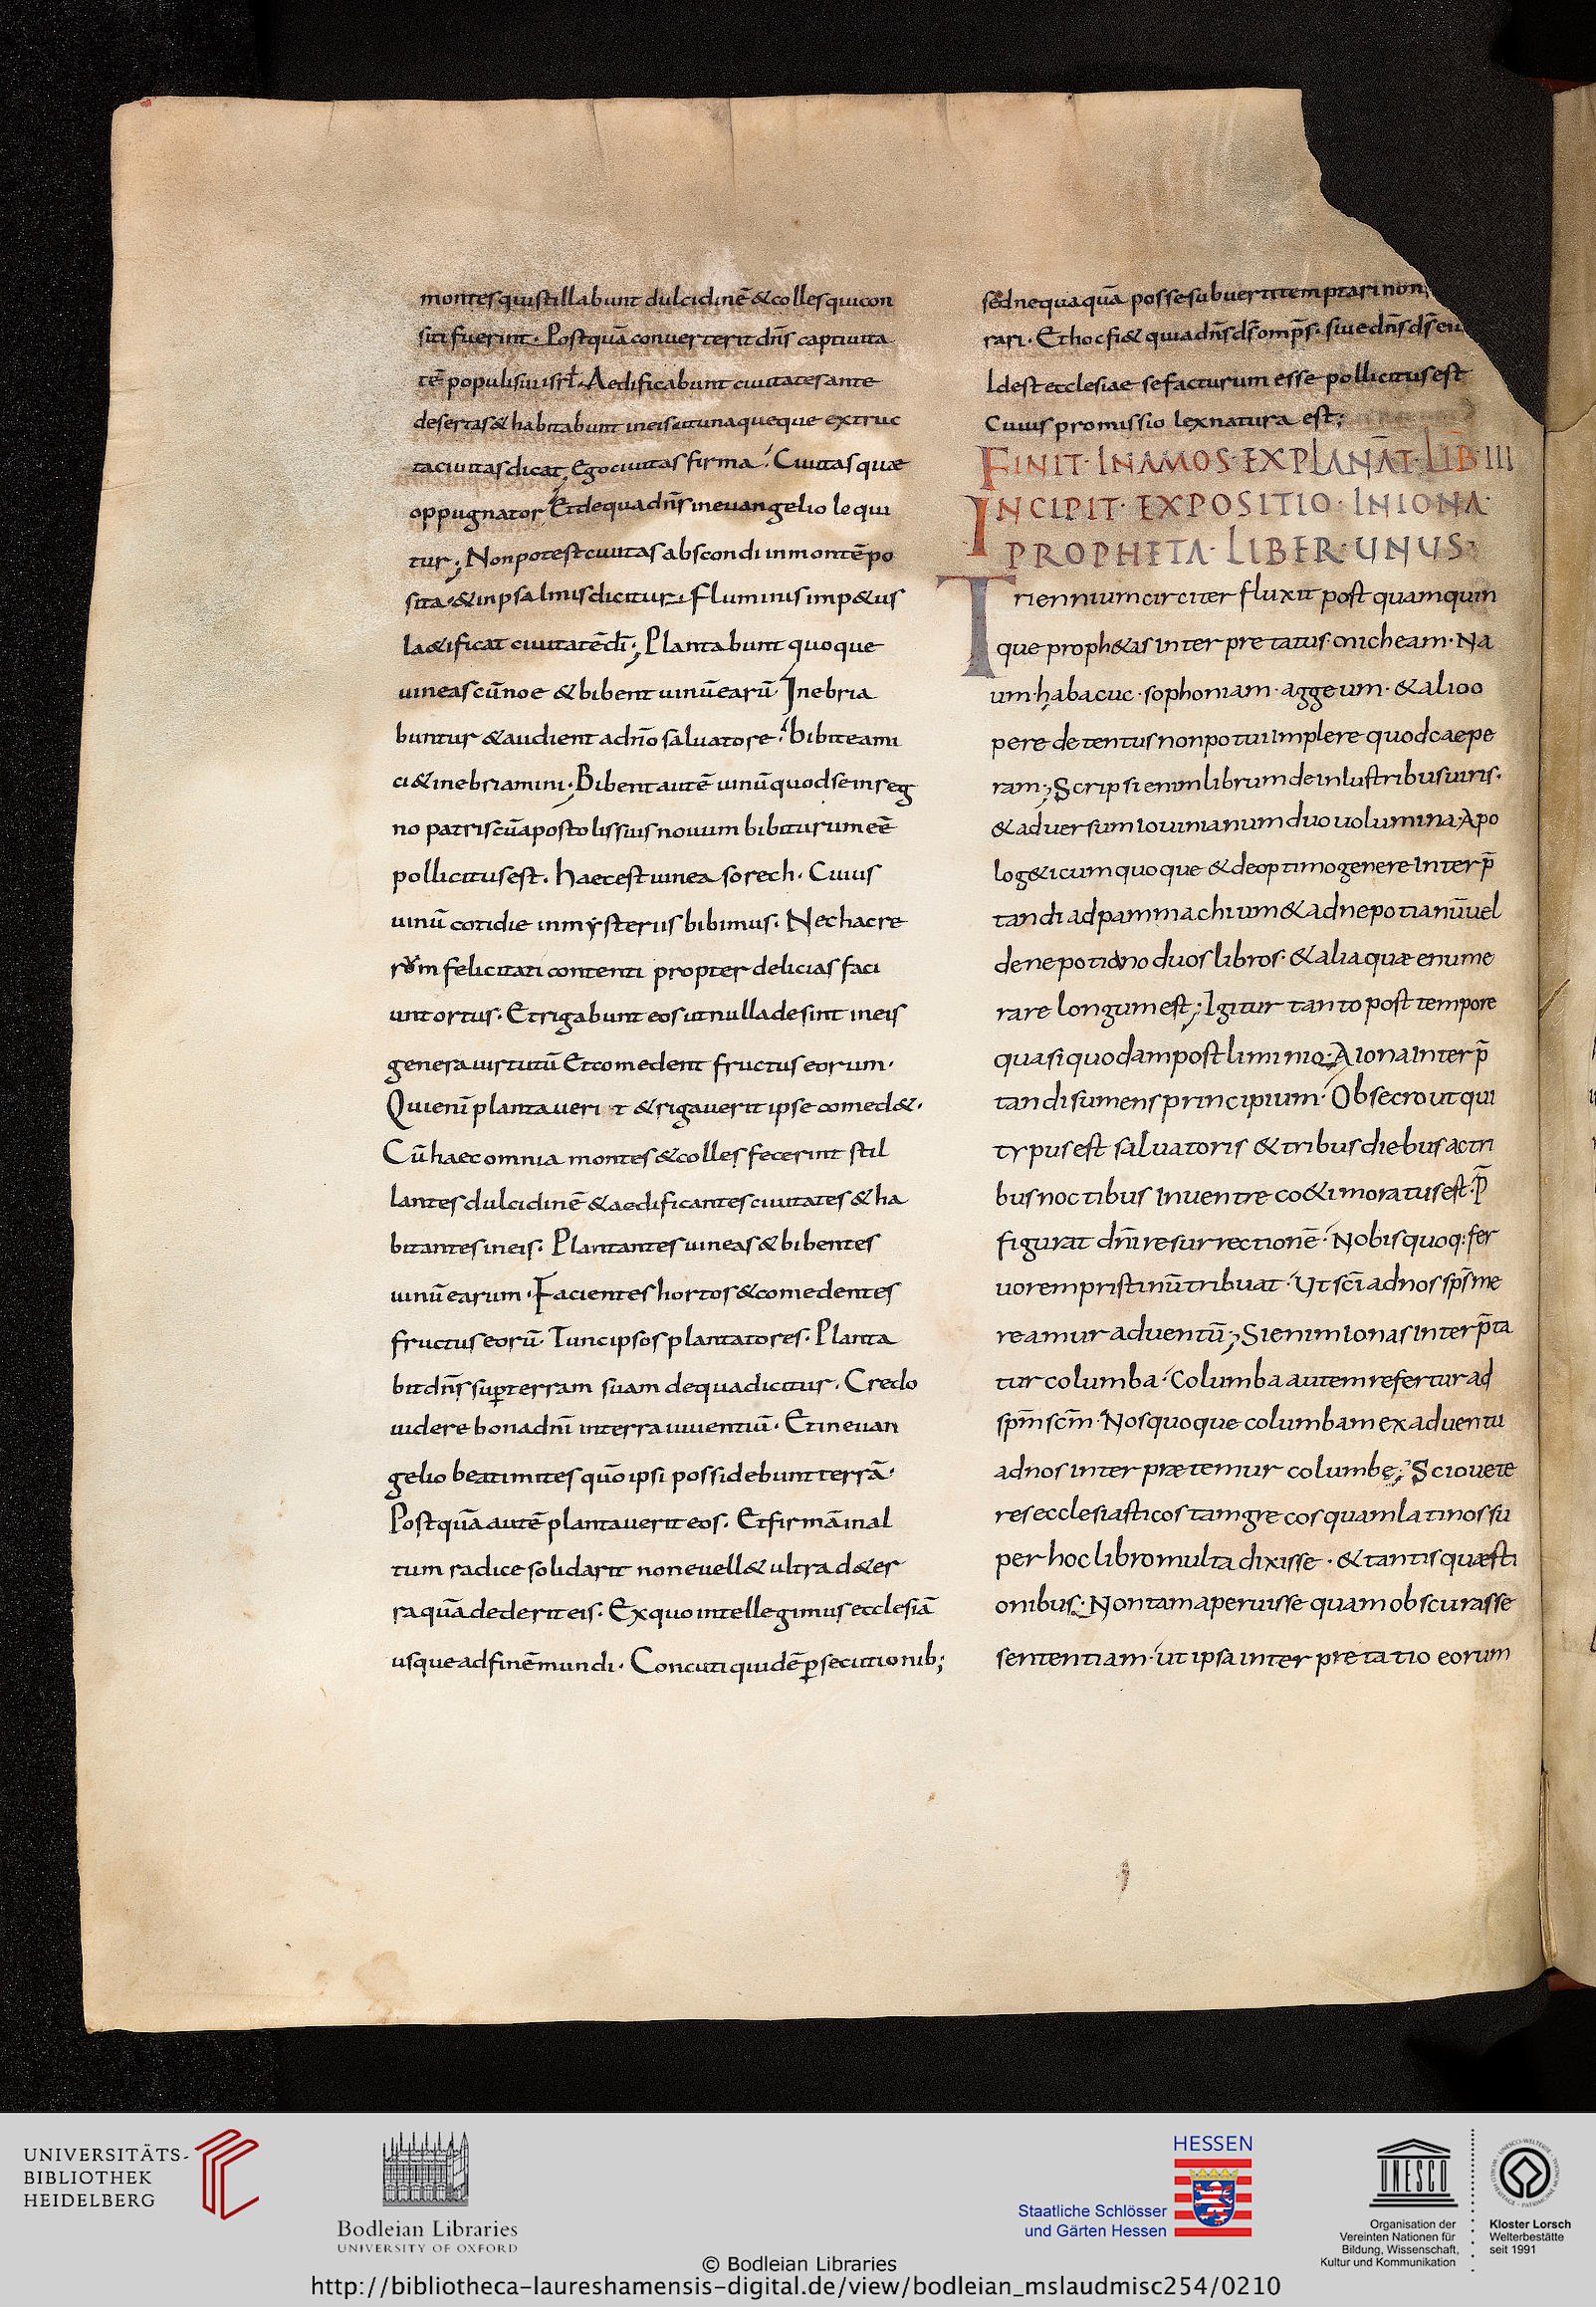 montes qui stillabunt dulcidinē & colles qui con
siti fuerint. Postquā converterit dn̄s captiuita
tē populi sui isrl̄. Aedificabunt ciuitates ante
desertas & habitabunt in eis ut unaqueque extruc
ta ciuitas dicat. Ego ciuitas firma. Ciuitas quae
oppugnator Et de qua dn̄s in euangelio lequi
tur; Non potest ciuitas abscondi in montē po
sita. & in psalmis dicitur. Fluminis imp&us
la&ificat ciuitatē dī; Plantabunt quoque
uineas cū noe & bibent uinū earū. Inebria
buntur & audient a dn̄o saluatore. bibite ami
ci & inebriamini; Bibent autē uinū quod se in reg
no patris cū apostolis suis nouum bibiturum eē
pollicitus est. haec est uinea sorech. Cuius
uinū cotidie in mysteriis bibimus. Nec hac re
rōm felicitati contenti propter delicias faci
unt ortus. Et rigabunt eos ut nulla desint in eis
genera uirtutū Et comedent fructus eorum.
Qui enī plantaueri t & rigauerit ipse comed&.
Cū haec omnia montes & colles fecerint stil
lantes dulcidinē & aedificantes ciuitates & ha
bitantes in eis. Plantantes uineas & bibentes
uinū earum. Facientes hortos & comedentes
fructus eorū. Tunc ipsos plantatores. Planta
bit dn̄s sup̄ terram suam de qua dicitur. Credo
uidere bona dn̄i in terra uiuentiū. Et in euan
gelio beati mites quō ipsi possidebunt terrā.
Postquā autē plantauerit eos. Et firmā in al
tum radice solidarit non euell& ultra d& er
ra quā dederit eis. Ex quo intellegimus ecclesiā
usque ad finē mundi. Concuti quidē p̱secutionib;
sed nequaquā posse subuerti temptari non
rari. Et hoc fi& quia dn̄s ds̄ omp̄s. siue dn̄s ds̄ eiu
Id est ecclesiae se facturum esse pollicitus est
Cuius promissio lex natura est;
FINIT· IN AMOS· EXPLANAT̄· LIB̄ III
INCIPIT· EXPOSITIO· IN IONA·
PROPHETA· LIBER· UNUS·
Triennium circiter fluxit post quam quin
que proph&as interpretatus micheam. Na
um. habacuc. sophoniam. aggeum. & alio o
pere detentus non potui implere quod caepe
ram; Scripsi enim librum de inlustribus uiris.
& aduersum iouinianum duo uolumina. Apo
log&icum quoque & de optimo genere interp̄
tandi ad pammachium & ad nepotianū uel
de nepotiano duos libros. & alia quae enume
rare longum est; Igitur tanto post tempore
quasi quodam postliminio. A iona interp̄
tandi sumens principium. Obsecro ut qui
typus est saluatoris & tribus diebus ac tri
bus noctibus in uentre co&i moratus est. P̄
figurat dn̄i resurrectionē. Nobis quoq: fer
uorem pristinū tribuat. Ut sc̄i ad nos sp̄s me
reamur aduentū; Si enim ionas interp̄ta
tur columba. Columba autem refertur ad
sp̄m sc̄m. Nos quoque columbam ex aduentu
ad nos interpraetemur columbę; Scio uete
res ecclesiasticos tam grecos quam latinos su
per hoc libro multa dixisse. & tantis quaesti
onibus. Non tam aperuisse quam obscurasse
sententiam. ut ipsa interpretatio eorum
UNIVERSITÄTS-
BIBLIOTHEK
HEIDELBERG
Bodleian Libraries
UNIVERSITY OF OXFORD
HESSEN
Staatliche Schlösser
und Gärten Hessen
UNESCO
Organisation der
Vereinten Nationen für
Bildung, Wissenschaft,
Kultur und Kommunikation
Kloster Lorsch
Welterbestätte
seit 1991
© Bodleian Libraries
http://bibliotheca-laureshamensis-digital.de/view/bodleian_mslaudmisc254/0210